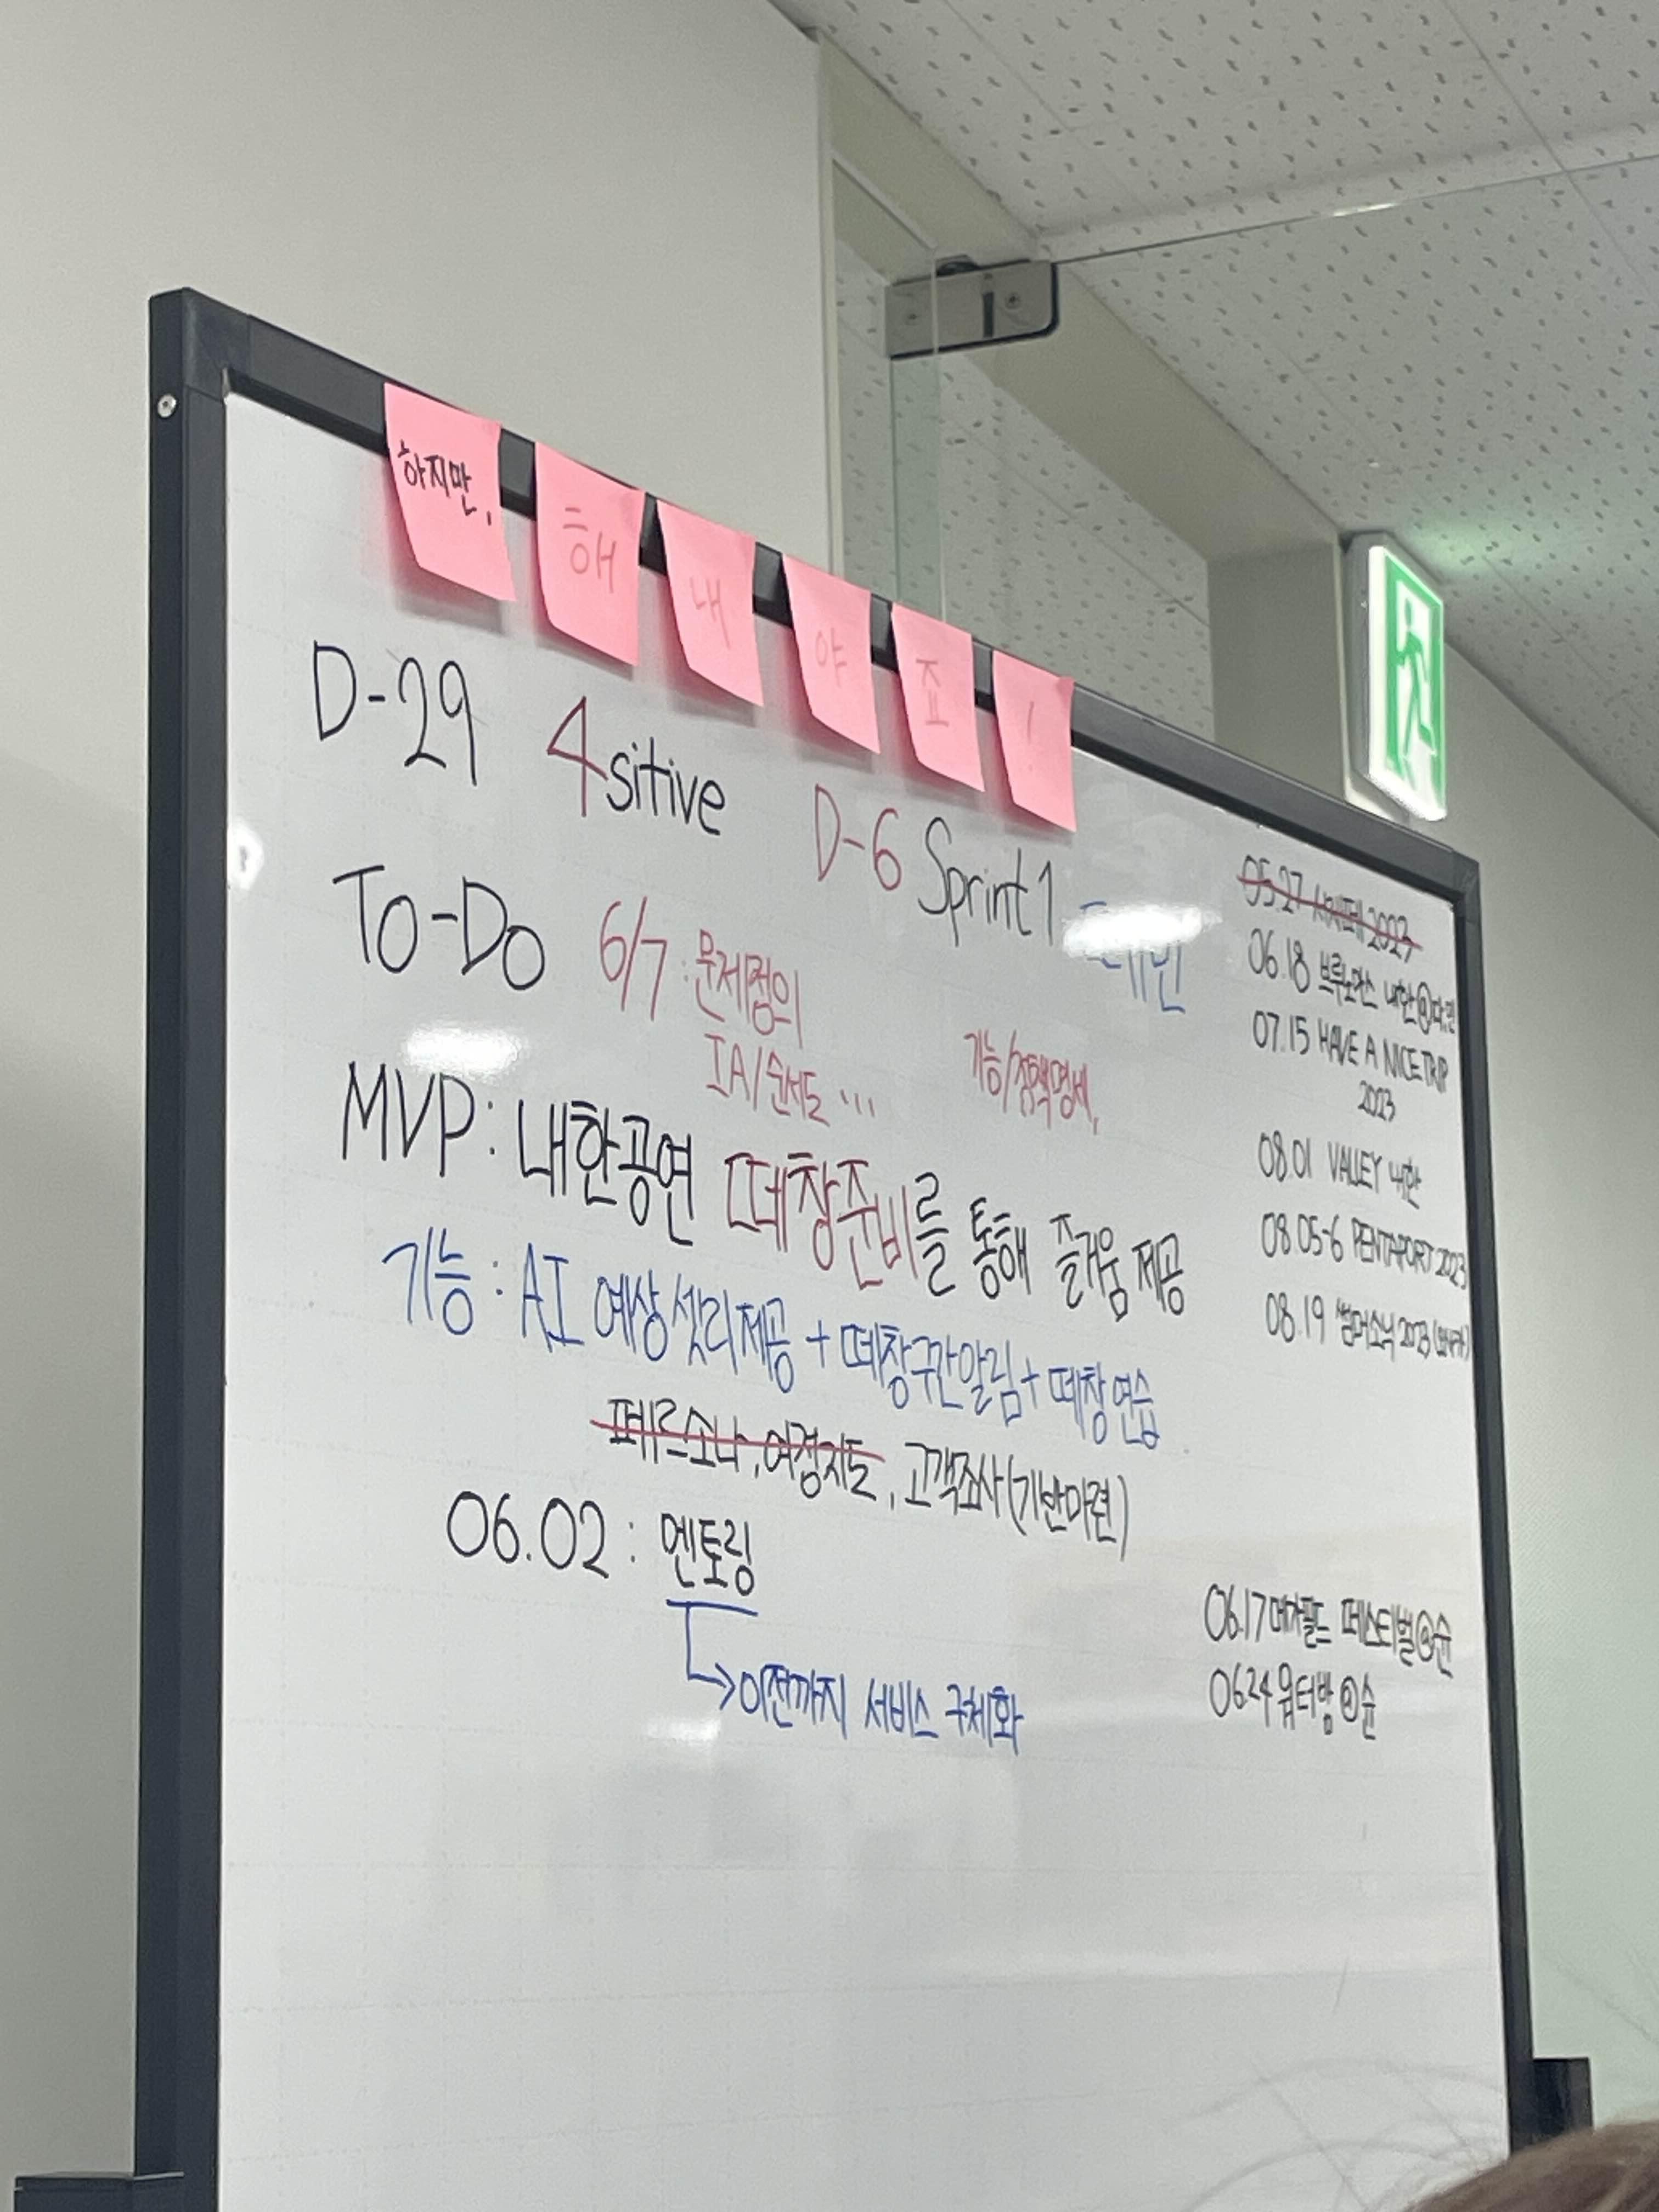 하지만,
해
내
야
죠
!
D-29 4sitive D-6 Sprint1
To-Do 6/7 : 문제정의
IA/순서도 ...
기능/정책명세,
MVP: 내한공연 떼창준비를 통해 즐거움 제공
기능 : AI 예상 셋리제공 + 떼창구간알림 + 떼창연습
페르소나, 여정지도, 고객조사(기반마련)
06.02 : 멘토링
→이전까지 서비스 구체화
05.27 2023
06.18 브루노마스 내한
07.15 HAVE A NICE TRIP
2023
08.01 VALLEY 내한
08.05-6 PENTAPORT 2023
08.19 썸머소닉 2023 (오사카)
06.17 메가필드 페스티벌@순
06.24 워터밤@순